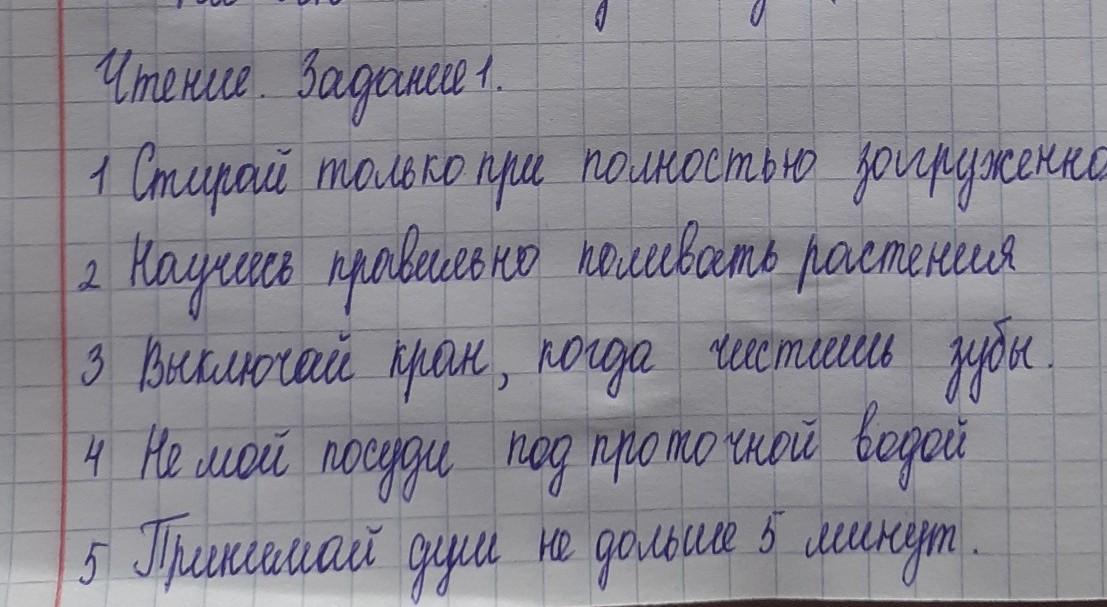 Чтение. Задание 1.
1 Стирай только при полностью загруженно
2 Научись правильно поливать растения
3 Выключай кран, когда чистишь зубы.
4 Не мой посуду под проточной водой
5 Принимай душ не дольше 5 минут.